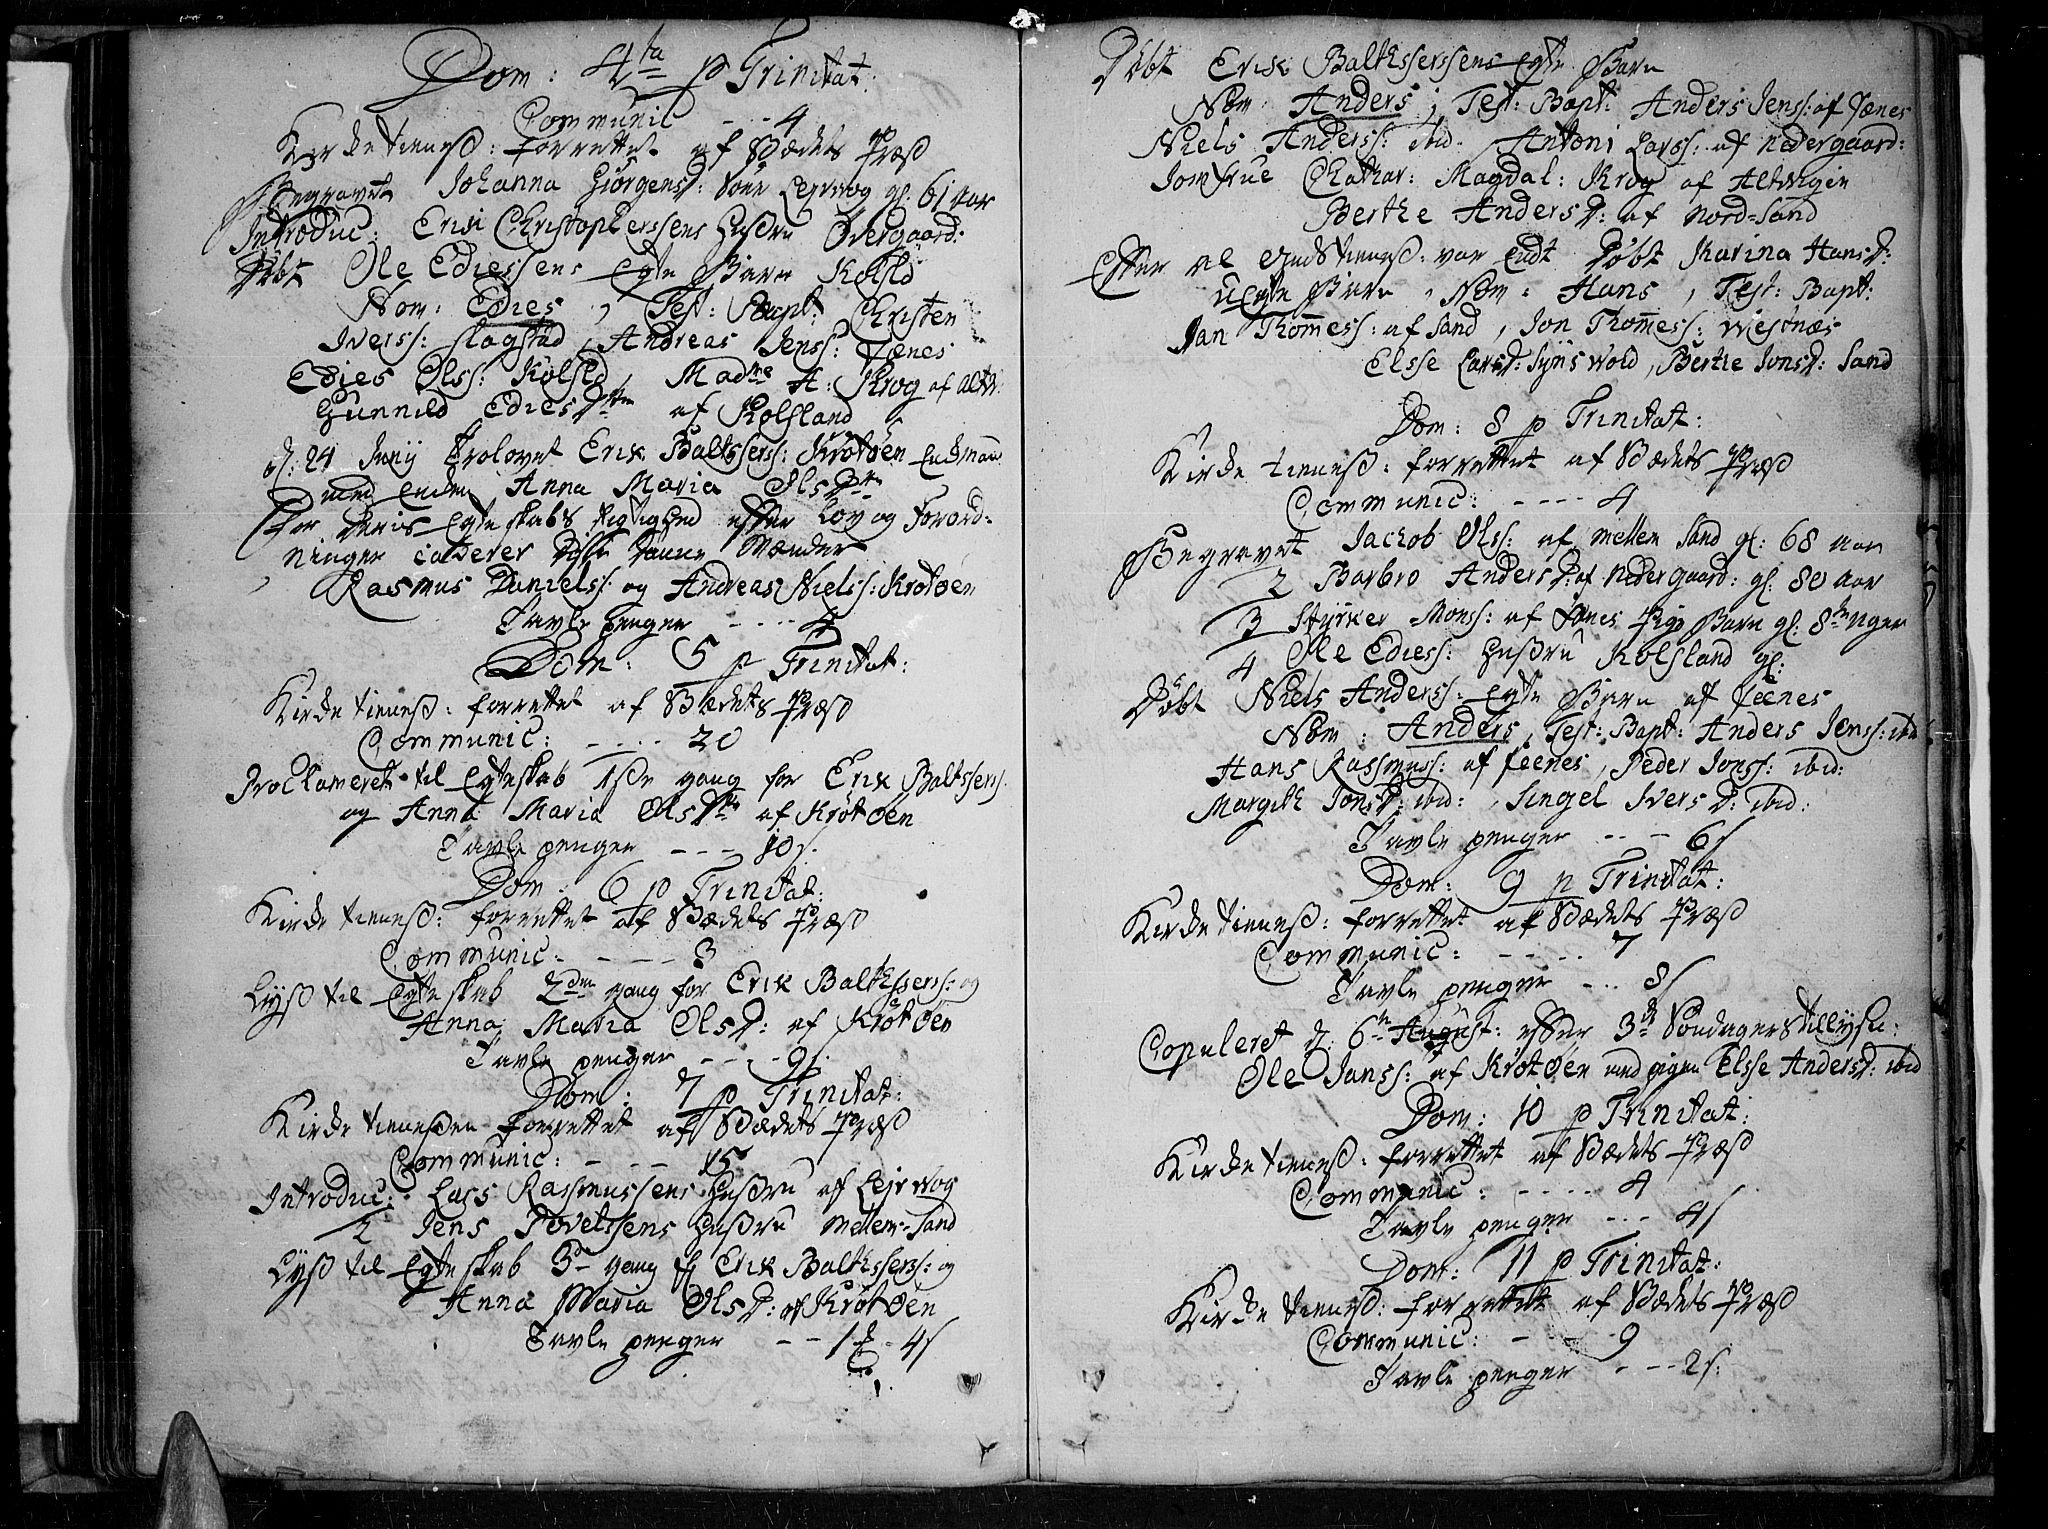 Dom: 4ta p Trinitat:
Communic - - - 4
Kircke tieneß: forrettet af Stædets Præst
Begravet Johanna Giörgensd: Leervog gl: 61 Aar
Introduc: Erik Christophersens Hustru Overgaard:
Döbt Ole Ediessens Egte Barn Kolsld
Nom: Edies, Test: Bapt: Christen
Iverss: Slogstad, Andreas Jenss: Fænes
Edies Olss: Kolsld, Madme A: Krog af Altv:
Gunnild Edies Dtter af Kolsland
d: 24 Junij Trolovet Erik Baltsserss: Krötöen Enckmand
med Enken Anna Maria Olsdtr
For deris Egteskabs rigtighed efter Lov og Forord-
ninger caverer disse Danne Mænder
Rasmus Daniels: og Andreas Nielss: Krötöen
Tavle penger - - - - 4
Dom: 5 p Trinitat:
Kircke tieneß: forrettet af Stædets Præst
Communic: - - - - 20
Proclameret til Egteskab 1ste gang for Erik Baltssers:
og Anna Maria Olsdtr af Krötöen
Tavle penger - - - 10 s.
Dom: 6 p Trinitat:
Kircke tieneß: forrettet af Stædets Præst
Communic - - - - - 3
Lyst til Egteskab 2den gang for Erik Balthsserss: og
Anna Maria Olsd: af Krötöen
Tavle penger - - - - 9 s.
Dom: 7 p Trinitat:
Kircke tienesten forrettet af Stædets Præst
Communic: - - - 15
Introduc: Lars Rasmussens Hustru af Lejrvog
2 Jens Povelssens Hustru Mellem-Sand
Lyst til Egteskab 3die gang f Erik Balthssers: og
Anna Maria Olsd: af Krötöen
Tavle penger - - 1 - 4 s
Döbt Erik Balthsserssens Egte Barn
Nom: Anders, Test: Bapt: Anders Jenss: af Fænes
Niels Anderss: ibid. Antoni Larss: af Nedergaard:
Jomfrue Chathar: Magdal: Krog af Altevigen
Berthe Andersd: af Nord-Sand
Efter at Gudstieneß: var Endt Döbt Karina Hansd:
uEgte Barn, Nom: Hans, Test: Bapt:
Jan Thommess: af Sand, Jon Thommess: Westnæs
Elsse Larsd: Synswold, Berthe Jonsd: Sand
Dom: 8 p Trinitat:
Kircke tieneß: forrettet af Stædets Præst
Communic: - - - - 4
Begravet Jachob Olss: af Mellem Sand gl: 68 Aar
2 Barbro Andersd: af Nedergaard: gl: 80 Aar
3 Styrker Monss: af Fænes Pige Barn gl: 8te Uger
4 Ole Ediess: Hustru Kolsland gl:
Döbt Niels Anderss: Egte Barn af Feenes
Nom: Anders, Test: Bapt: Anders Jenss: ibid
Hans Rassmuss: af Feenes, Peder Jonss: ibid:
Margith Jonsd: ibid:, Singel Iversd: ibid:
Tavle penger - - - 6 s
Dom: 9 p Trinitat:
Kircke tieneß: forrettet af Stædets Præst
Communic: - - - - - 7
Tavle penger - - - 8 s
Copuleret d: 6te August: efter 3de Söndagers tillysn:
Ole Janss: af Krötöen med pigen Elsse Andersd: ibid
Dom: 10 p Trinitat:
Kircke tieneß: forrettet af Stædets Præst
Communic: - - - - 4
Tavle penger - - - 4 s
Dom: 11 p Trinitat:
Kircke tieneß: forrettet af Stædets Præst
Communic: - - - - 9
Tavle penger - - - 2 s: